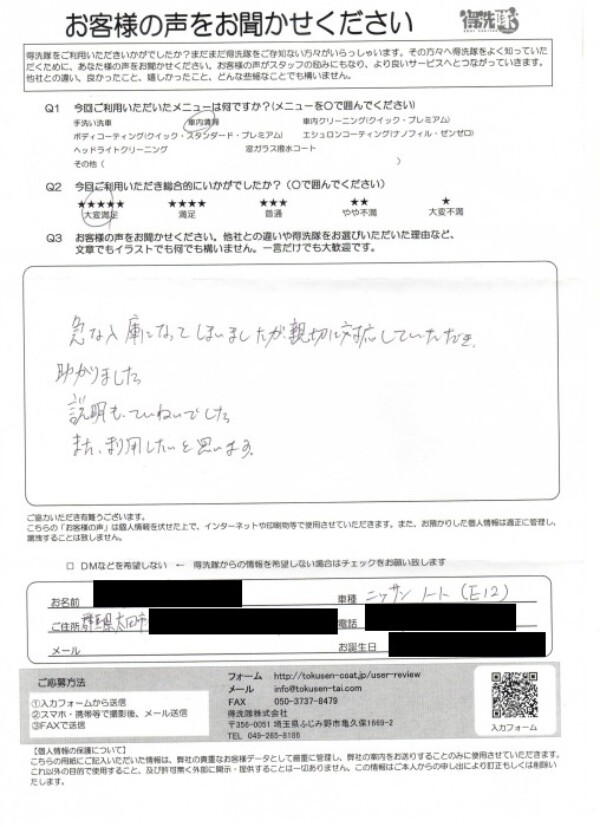 お客様の声をお聞かせください
得洗隊
得洗隊をご利用いただきいかがでしたか?まだまだ得洗隊をご存知ない方々がいらっしゃいます。その方々へ得洗隊をよく知っていた
だくために、あなた様の声をお聞かせください。お客様の声がスタッフの励みにもなり、より良いサービスへとつながっていきます。
他社との違い、良かったこと、嬉しかったこと、どんな些細なことでも構いません。
Q1 今回ご利用いただいたメニューは何ですか?(メニューを〇で囲んでください)
手洗い洗車 車内清掃 車内クリーニング(クイック・プレミアム)
ボディコーティング(クイック・スタンダード・プレミアム) エシュロンコーティング(ナノフィル・ゼンゼロ)
ヘッドライトクリーニング 窓ガラス撥水コート
その他( )
Q2 今回ご利用いただき総合的にいかがでしたか?(〇で囲んでください)
★★★★★ ★★★★ ★★★ ★★ ★
大変満足 満足 普通 やや不満 大変不満
Q3 お客様の声をお聞かせください。他社との違いや得洗隊をお選びいただいた理由など、
文章でもイラストでも何でも構いません。一言だけでも大歓迎です。
急な入庫になってしまいましたが、親切に対応していただき、
助かりました
説明も、ていねいでした
また、利用したいと思います。
ご協力いただき有難うございます。
こちらの「お客様の声」は個人情報を伏せた上で、インターネットや印刷物等で使用させていただきます。また、お預かりした個人情報は適正に管理し、
漏洩することは致しません。
□ DMなどを希望しない ← 得洗隊からの情報を希望しない場合はチェックをお願い致します
お名前 車種 ニッサン ノート (E12)
ご住所 群馬県太田市 電話
メール お誕生日
ご応募方法
①入力フォームから送信
②スマホ・携帯等で撮影後、メール送信
③FAXで送信
フォーム http://tokusen-coat.jp/user-review
メール info@tokusen-tai.com
FAX 050-3737-8479
得洗隊株式会社
〒356-0051 埼玉県ふじみ野市亀久保1669-2
TEL 049-265-8186
入力フォーム
【個人情報の保護について】
こちらの用紙にご記入いただいた情報は、弊社の貴重なお客様データとして厳重に管理し、弊社の案内をお送りすることのみに使用させていただきます。
これ以外の目的で使用すること、及び許可無く外部に開示・提供することは一切ありません。この情報はご本人からの申し出により訂正もしくは削除いた
します。